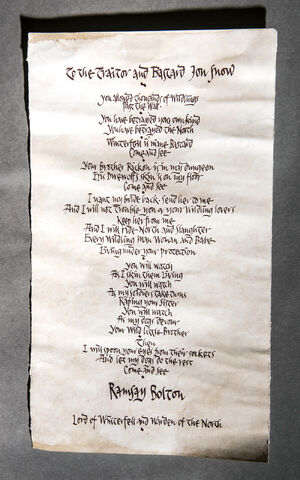 To the Traitor and Bastard Jon Snow
You allowed thousands of Wildlings
Past the Wall
You have betrayed your own kind
You have betrayed the North
Winterfell is mine Bastard
Come and see
Your brother Rickon is in my dungeon
His Direwolf's skin is on my floor
Come and see
I want my bride back send her to me
And I will not trouble you or your wildling lovers
Keep her from me
And I will ride North and Slaughter
Every Wildling Man Woman and Babe
Living under your protection
You will watch
As I skin them living
You will watch
As my soldiers take turns
Raping your sister
You will watch
As my dogs devour
Your wild little Brother
Then
I will spoon your eyes from their sockets
And let my dogs do the rest
Come and see
Ramsay Bolton
Lord of Winterfell and Warden of the North